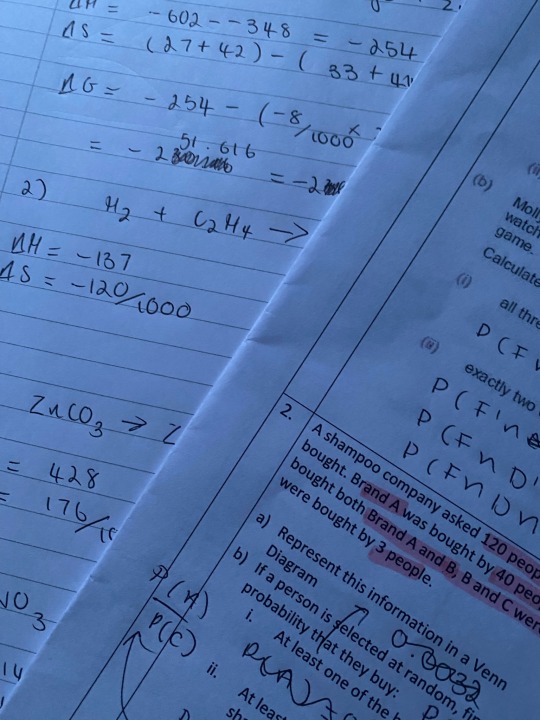 ΔH = -602 - -348 = -254
ΔS = (27 + 42) - ( 33 + 41
ΔG = -254 - (-8/1000 ×
= -251.616 = -2
2) H2 + C2H4 →
ΔH = -137
ΔS = -120/1000
ZnCO3 → Z
= 428
= 176/10
NO3
14
2.
(b)
Moll
watch
game.
Calculate
(i)
all thre
P(F n
(ii)
exactly two
P(F n
P(F n D'
P(F n D n
2.
A shampoo company asked 120 peop
bought. Brand A was bought by 40 peo
bought both Brand A and B, B and C were
were bought by 3 people.
a) Represent this information in a Venn
Diagram
b) If a person is selected at random, fi
probability that they buy:
i. At least one of the
P(A)
ii. At least
P(A)
P(C)